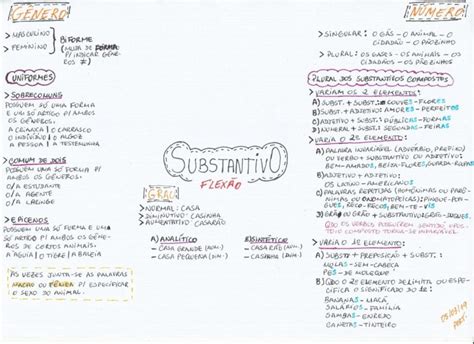 GÊNERO
> MASCULINO
> FEMININO
BIFORME
(MUDA DE FORMA
P/ INDICAR GÊNE-
ROS ≠)
UNIFORMES
> SOBRECOMUNS
POSSUEM SÓ UMA FORMA
E UM SÓ ARTIGO P/ AMBOS
OS GÊNEROS.
A CRIANÇA | O CARRASCO
O INDIVÍDUO | O ALGOZ
A PESSOA | A TESTEMUNHA
> COMUM DE DOIS
POSSUEM UMA SÓ FORMA P/
AMBOS OS GÊNEROS:
O/A ESTUDANTE
O/A AGENTE
> EPICENOS
POSSUEM UMA SÓ FORMA E UM
SÓ ARTIGO P/ AMBOS OS GÊNE-
ROS DE CERTOS ANIMAIS.
A ÁGUIA | O TIGRE | A BALEIA
ÀS VEZES JUNTA-SE AS PALAVRAS
MACHO OU FÊMEA P/ ESPECIFICAR
O SEXO DO ANIMAL.
SUBSTANTIVO
FLEXÃO
GRAU
> NORMAL: CASA
> DIMINUTIVO: CASINHA
> AUMENTATIVO: CASARÃO
A) ANALÍTICO
CASA GRANDE (AUM.)
CASA PEQUENA (DIM.)
B) SINTÉTICO
CASARÃO (AUM.)
CASINHA (DIM.)
NÚMERO
> SINGULAR: O GÁS - O ANIMAL - O
CIDADÃO - O PÃOZINHO
> PLURAL: OS GASES - OS ANIMAIS - OS
CIDADÃOS - OS PÃEZINHOS
PLURAL DOS SUBSTANTIVOS COMPOSTOS
> VARIAM OS 2 ELEMENTOS:
A) SUBST + SUBST.: COUVES-FLORES
B) SUBST + ADJETIVO: AMORES-PERFEITOS
C) ADJETIVO + SUBST.: PÚBLICAS-FORMAS
D) NUMERAL + SUBST.: SEGUNDAS-FEIRAS
> VARIA O 2º ELEMENTO:
A) PALAVRA INVARIÁVEL (ADVÉRBIO, PREFIXO)
OU VERBO + SUBSTANTIVO OU ADJETIVO:
BEM-AMADOS, BEIJA-FLORES, GUARDA-ROUPAS
B) ADJETIVO + ADJETIVO:
OS LATINO-AMERICANOS
C) PALAVRAS REPETIDAS
D) GRÃO OU GRÃ + SUBSTANTIVO:
> VARIA O 1º ELEMENTO:
A) SUBST + PREPOSIÇÃO + SUBST.:
MULAS-SEM-CABEÇA
PÉS-DE-MOLEQUE
B) QDO O 2º ELEMENTO DELIMITA OU ESPE-
CIFICA O SIGNIFICADO DO 1º:
BANANAS-MAÇÃ
SALÁRIOS-FAMÍLIA
SAMBAS-ENREDO
CANETAS-TINTEIRO